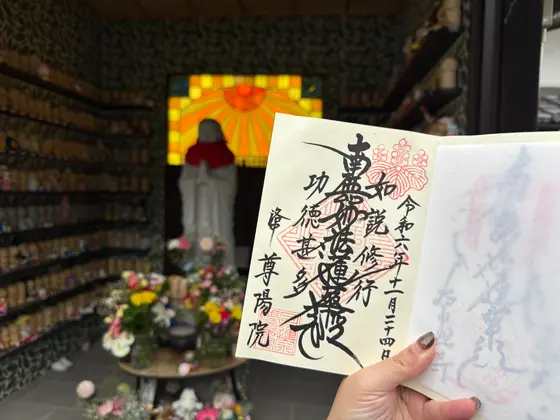 令和六年十一月二十四日
如説修行
南無妙法蓮華経
功徳甚多
尊陽院